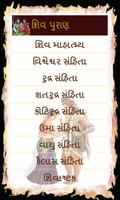 શિવ પુરાણ
શિવ માહાત્મ્ય
વિધ્યેશ્વર સંહિતા
રુદ્ર સંહિતા
શતરુદ્ર સંહિતા
કોટિરુદ્ર સંહિતા
ઉમા સંહિતા
વાયુ સંહિતા
કૈલાસ સંહિતા
શિવાષ્ટક